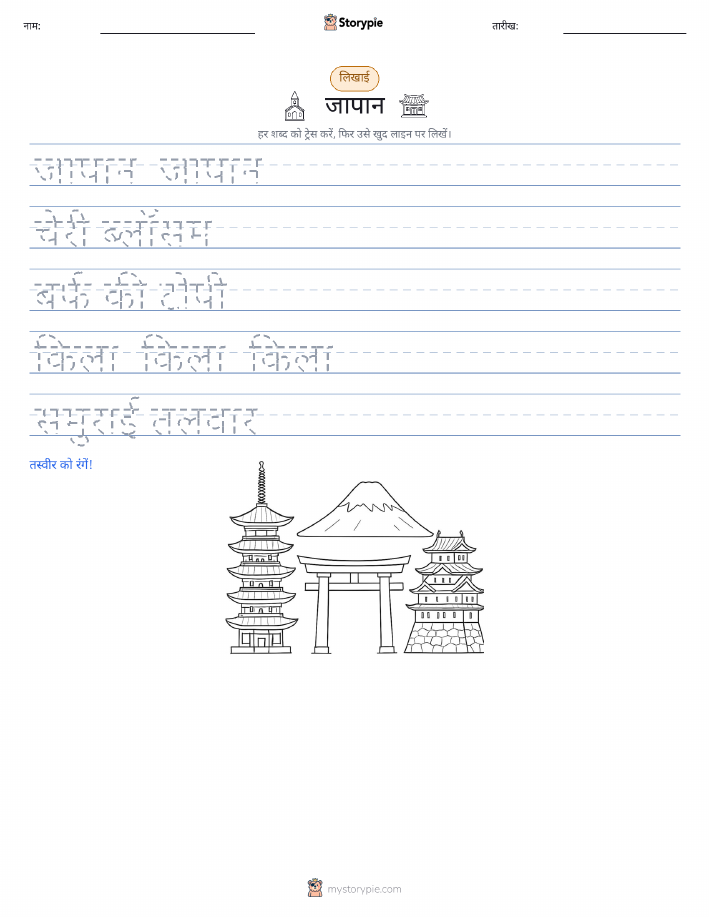 नाम:
Storypie
तारीख:
लिखाई
जापान
हर शब्द को ट्रेस करें, फिर उसे खुद लाइन पर लिखें।
जापान जापान
चेरी ब्लॉसम
बर्फ की टोपी
किला किला किला
समुराई तलवार
तस्वीर को रंगें!
mystorypie.com